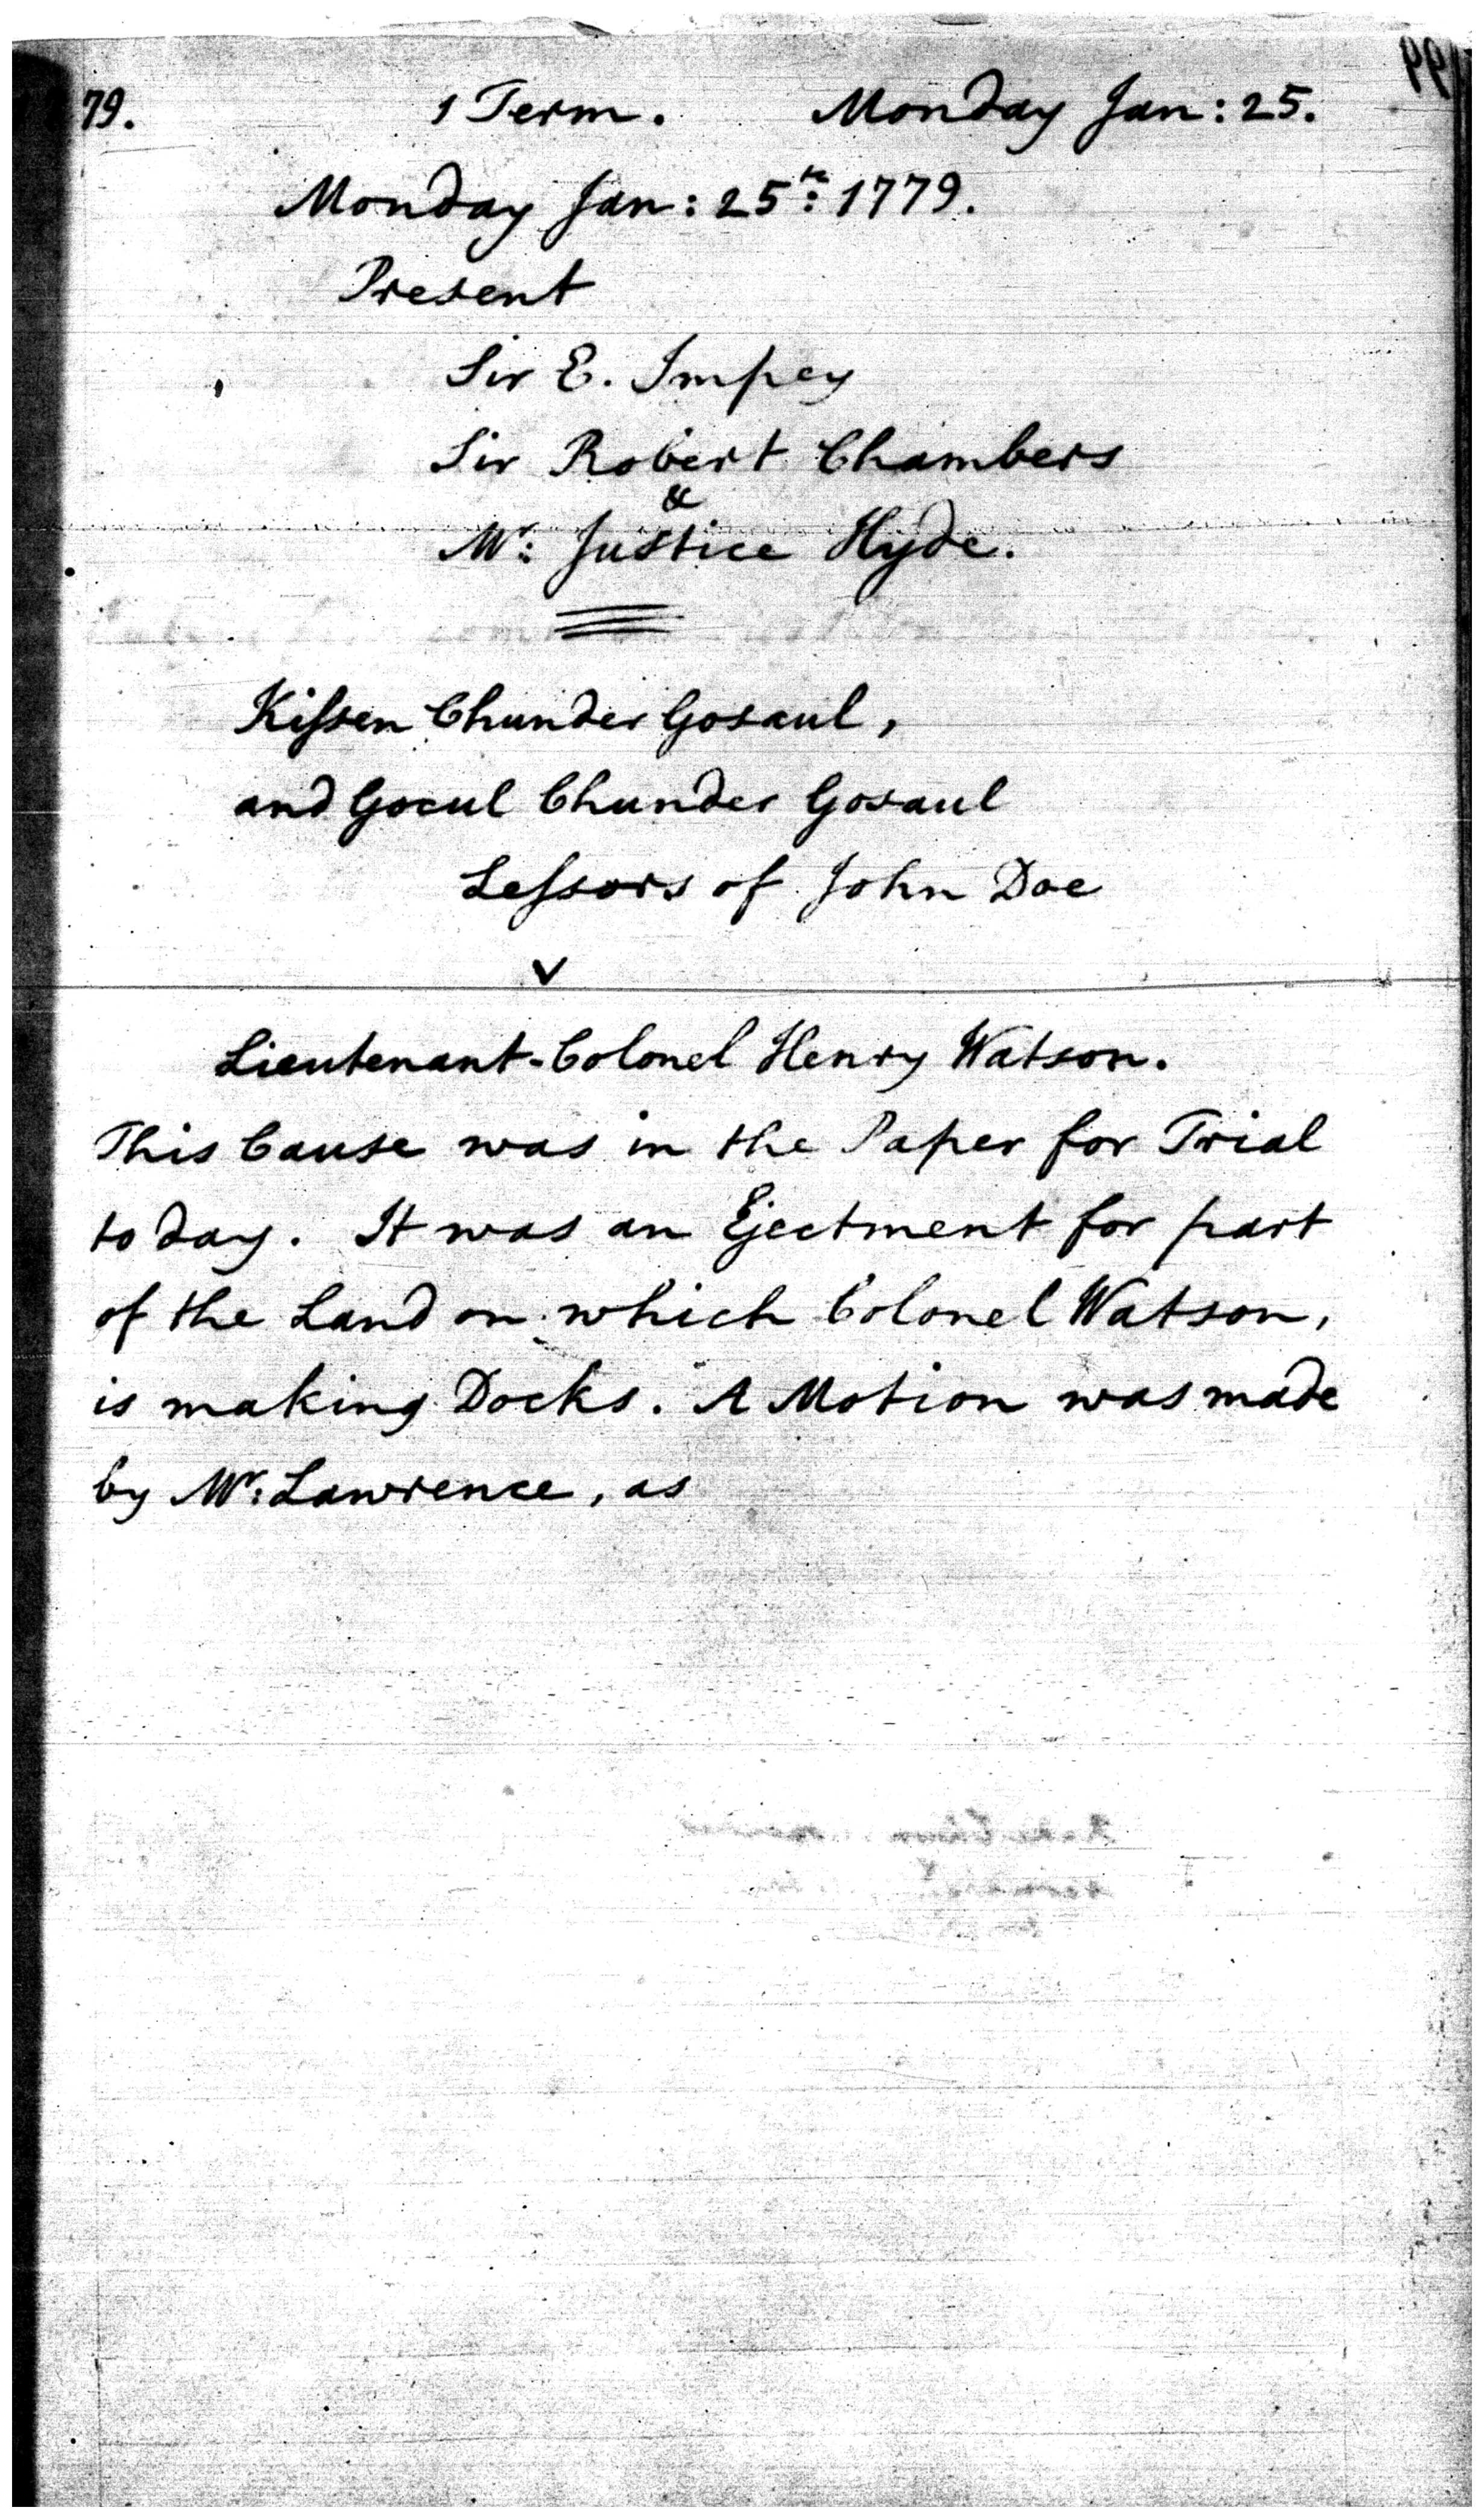 79. 1 Term. Monday Jan: 25.
Monday Jan: 25th: 1779.
Present
Sir E. Impey
Sir Robert Chambers
&
Mr: Justice Hyde.
Kiſsen Chunder Gosaul,
and Gocul Chunder Gosaul
Leſsors of John Doe
v
Lieutenant-Colonel Henry Watson.
This Cause was in the Paper for Trial
to day. It was an Ejectment for part
of the Land on which Colonel Watson,
is making Docks. A Motion was made
by Mr: Lawrence, as